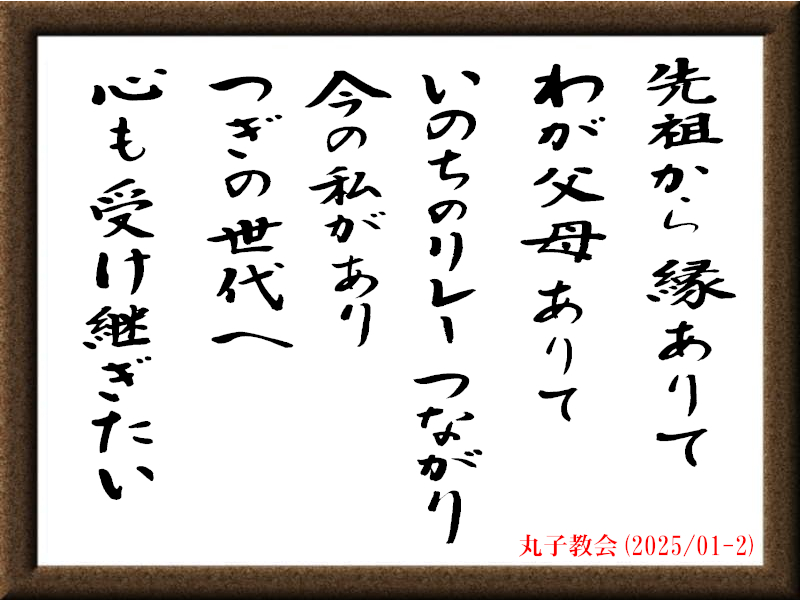 先祖から縁ありて
わが父母ありて
いのちのリレーつながり
今の私があり
つぎの世代へ
心も受け継ぎたい
丸子教会(2025/01-2)